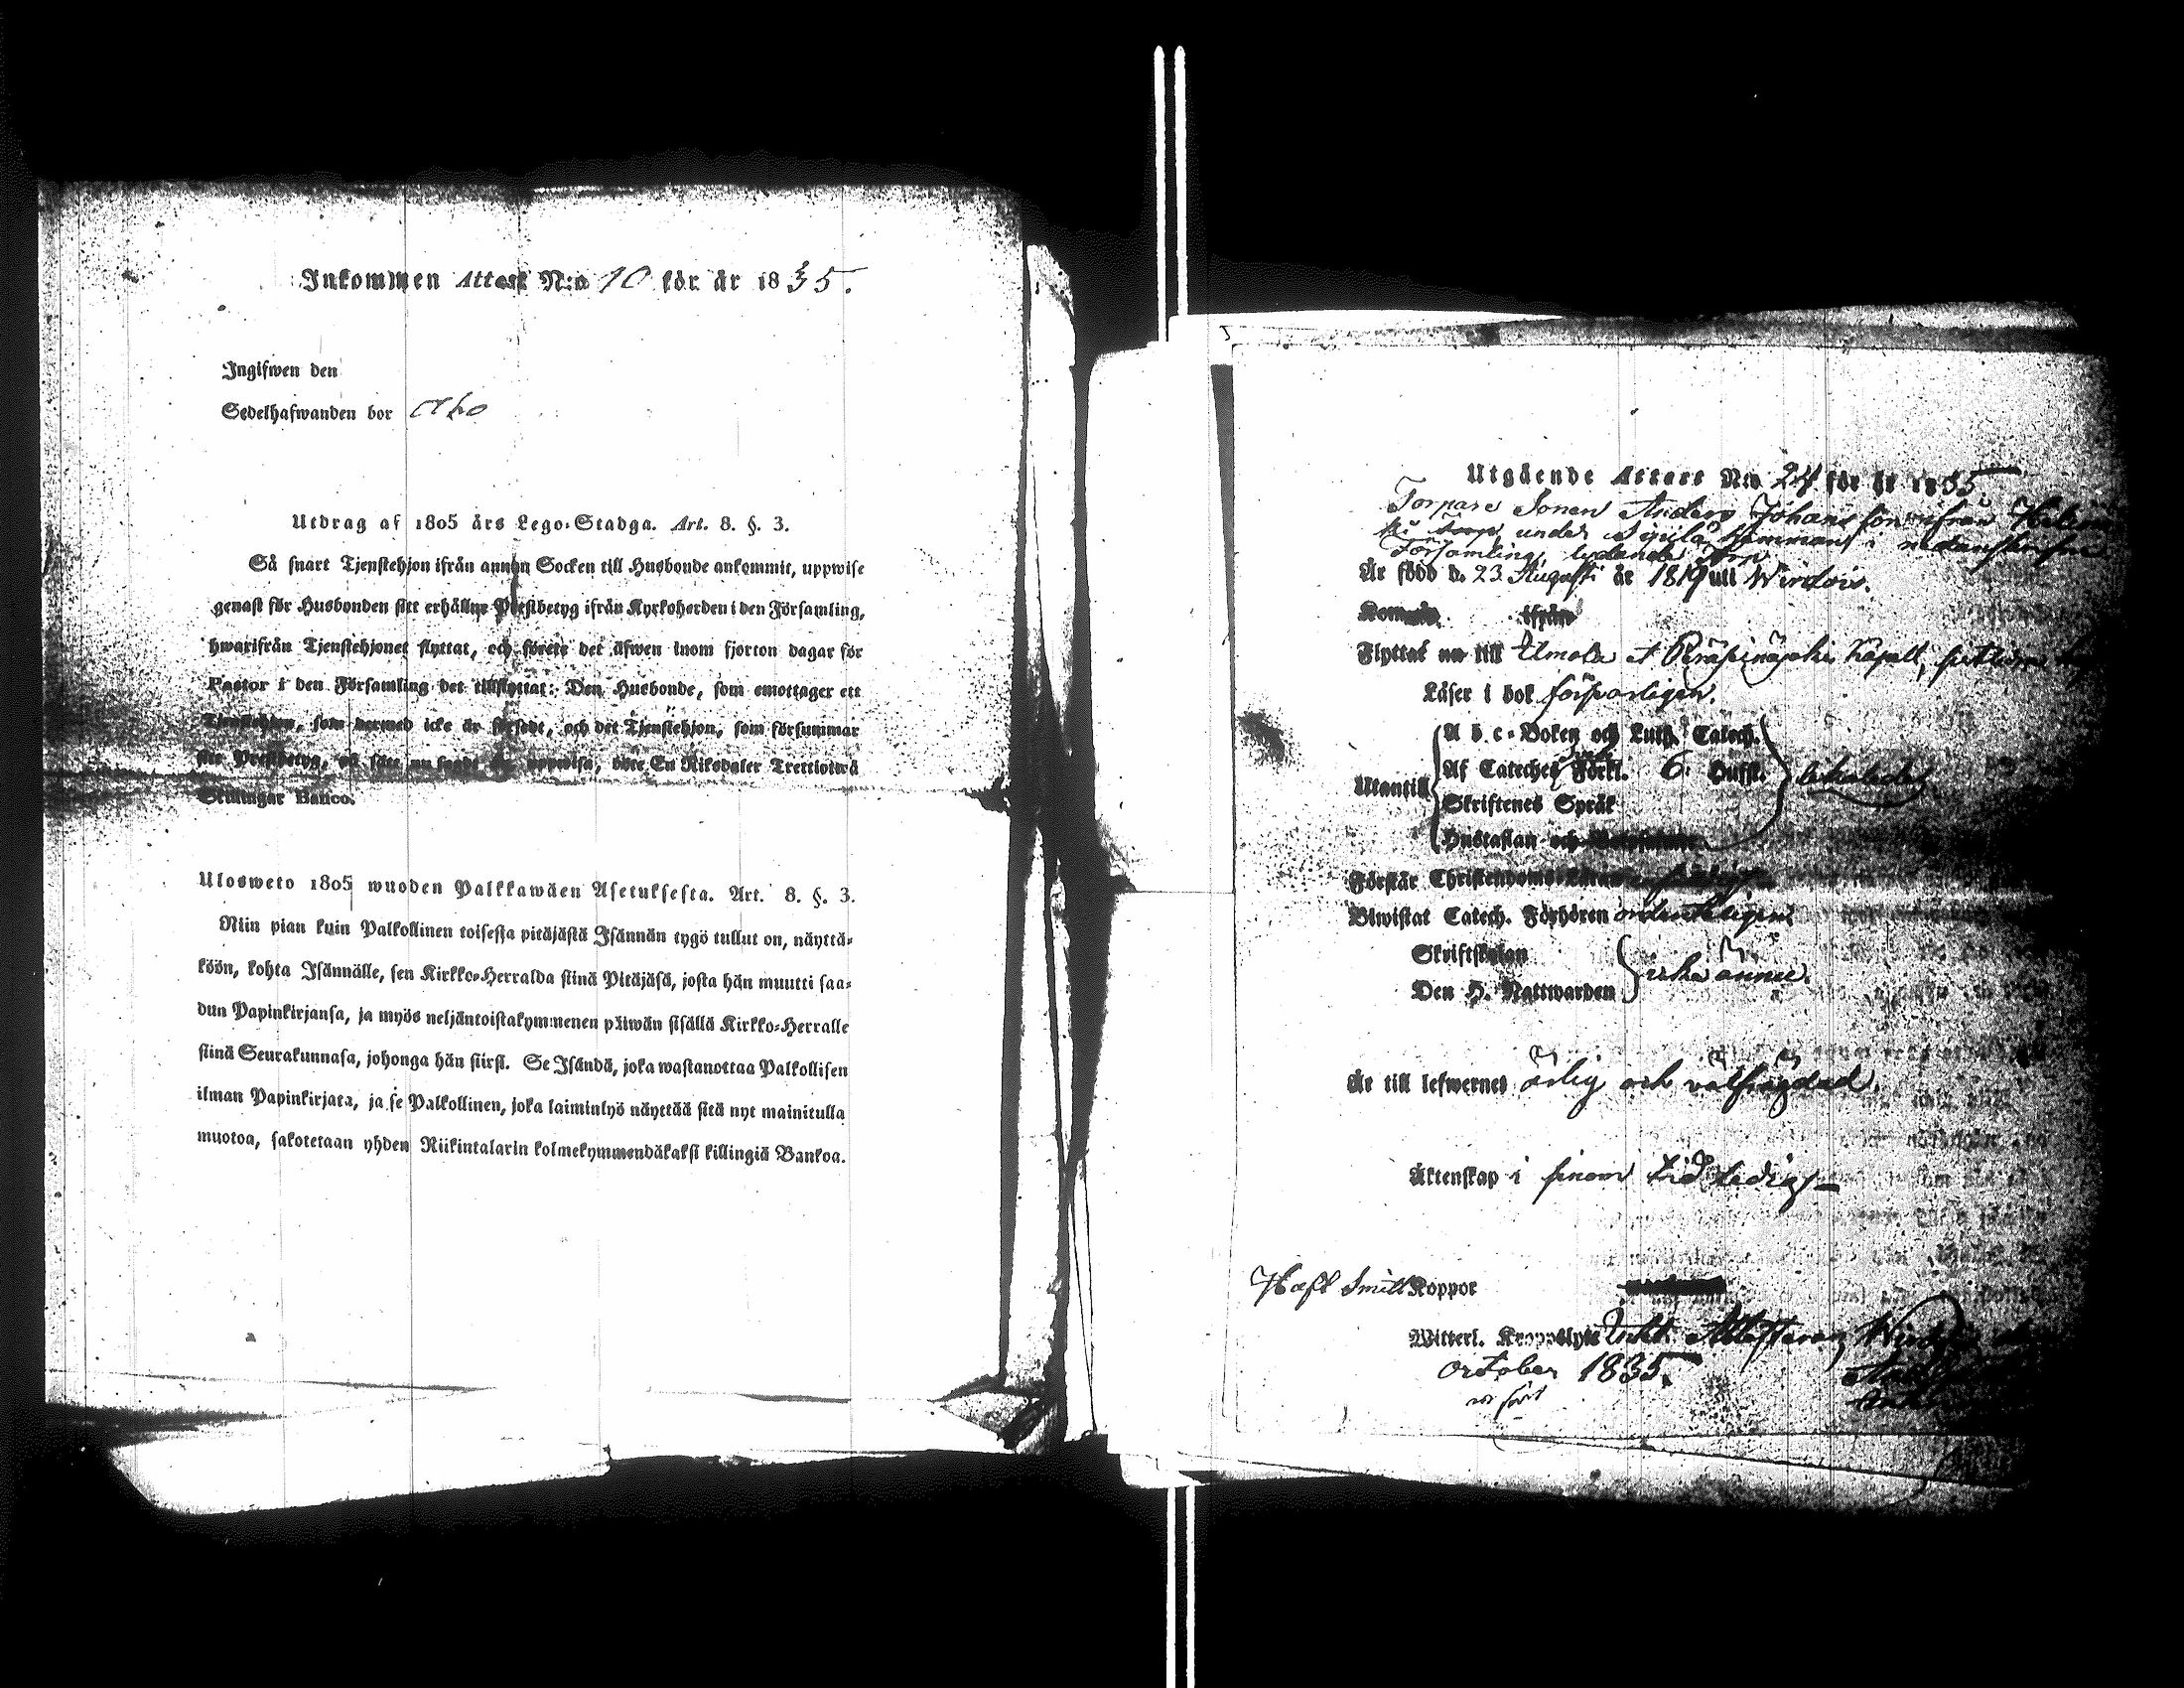 Inkommen Attest N:o 10 för år 1835.
Ingifwen den
Sedelhafwanden bor Aho
Utdrag af 1805 års Lego-Stadga. Art. 8. §. 3.
Så snart Tjenstehjon ifrån annan Socken till Husbonde ankommit, uppwise
genast för Husbonden sitt erhållne Prestbetyg ifrån Kyrkoherden i den Församling,
hwarifrån Tjenstehjonet flyttat, och förete det äfwen inom fjorton dagar för
Pastor i den Församling det tillflyttat: Den Husbonde, som emottager ett
Tjenstehjon, som dermed icke är försedt, och det Tjenstehjon, som försummar
sitt Prestbetyg, på sätt nu sagdt är, uppwisa, böte En Riksdaler Trettiotwå
Skillingar Banco.
Ulosweto 1805 wuoden Palkkawäen Asetuksesta. Art. 8. §. 3.
Niin pian kuin Palkollinen toisesta pitäjästä Isännän tygö tullut on, näyttä-
köön, kohta Isännälle, sen Kirkko-Herralda siinä Pitäjäsä, josta hän muutti saa-
dun Papinkirjansa, ja myös neljäntoistakymmenen päiwän sisällä Kirkko-Herralle
siinä Seurakunnasa, johonga hän siirsi. Se Isändä, joka wastanottaa Palkollisen
ilman Papinkirjata, ja se Palkollinen, joka laiminlyö näyttää sitä nyt mainitulla
muotoa, sakotetaan yhden Riikintalarin kolmekymmendäkaksi killingiä Bankoa.
Utgående Attest N:o 24 för år 1835
Torpare Sonen Anders Johansson ifrån
under hemmans i
Församling lydande Torp
Är född d. 23 Augusti år 1819 uti Wirdois.
ifrån
Flyttat till Ilmola et Peräseinäjoki Capell,
Läser i bok försvarligen.
A b c-Boken och Luth. Catech.
Af Cateches Förkl. 6. Hufst.
Utantill
Skriftenes Språk
Hustaflan och
Förstår Christendoms-Läran
Biwistat Catech. Förhören ordenteligen
Skriftskolan
Den H. Nattwarden
icke ännu.
Är till lefwernet ärlig och välfrägdad.
Äktenskap i sinom tid ledig
Haft Smitt Koppor
Witterl. Kroppslyte
October 1835.